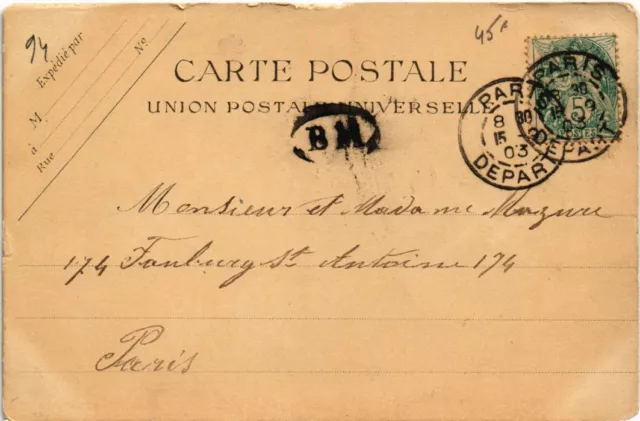 94
45
Expédié par
No
M
à
Rue
CARTE POSTALE
UNION POSTALE UNIVERSELLE
BM
PARIS
8 30
15
03
DEPART
PARIS
30
DEPART
5
POSTES
Monsieur et Madame Mazure
174 Faubury St Antoine 174
Paris